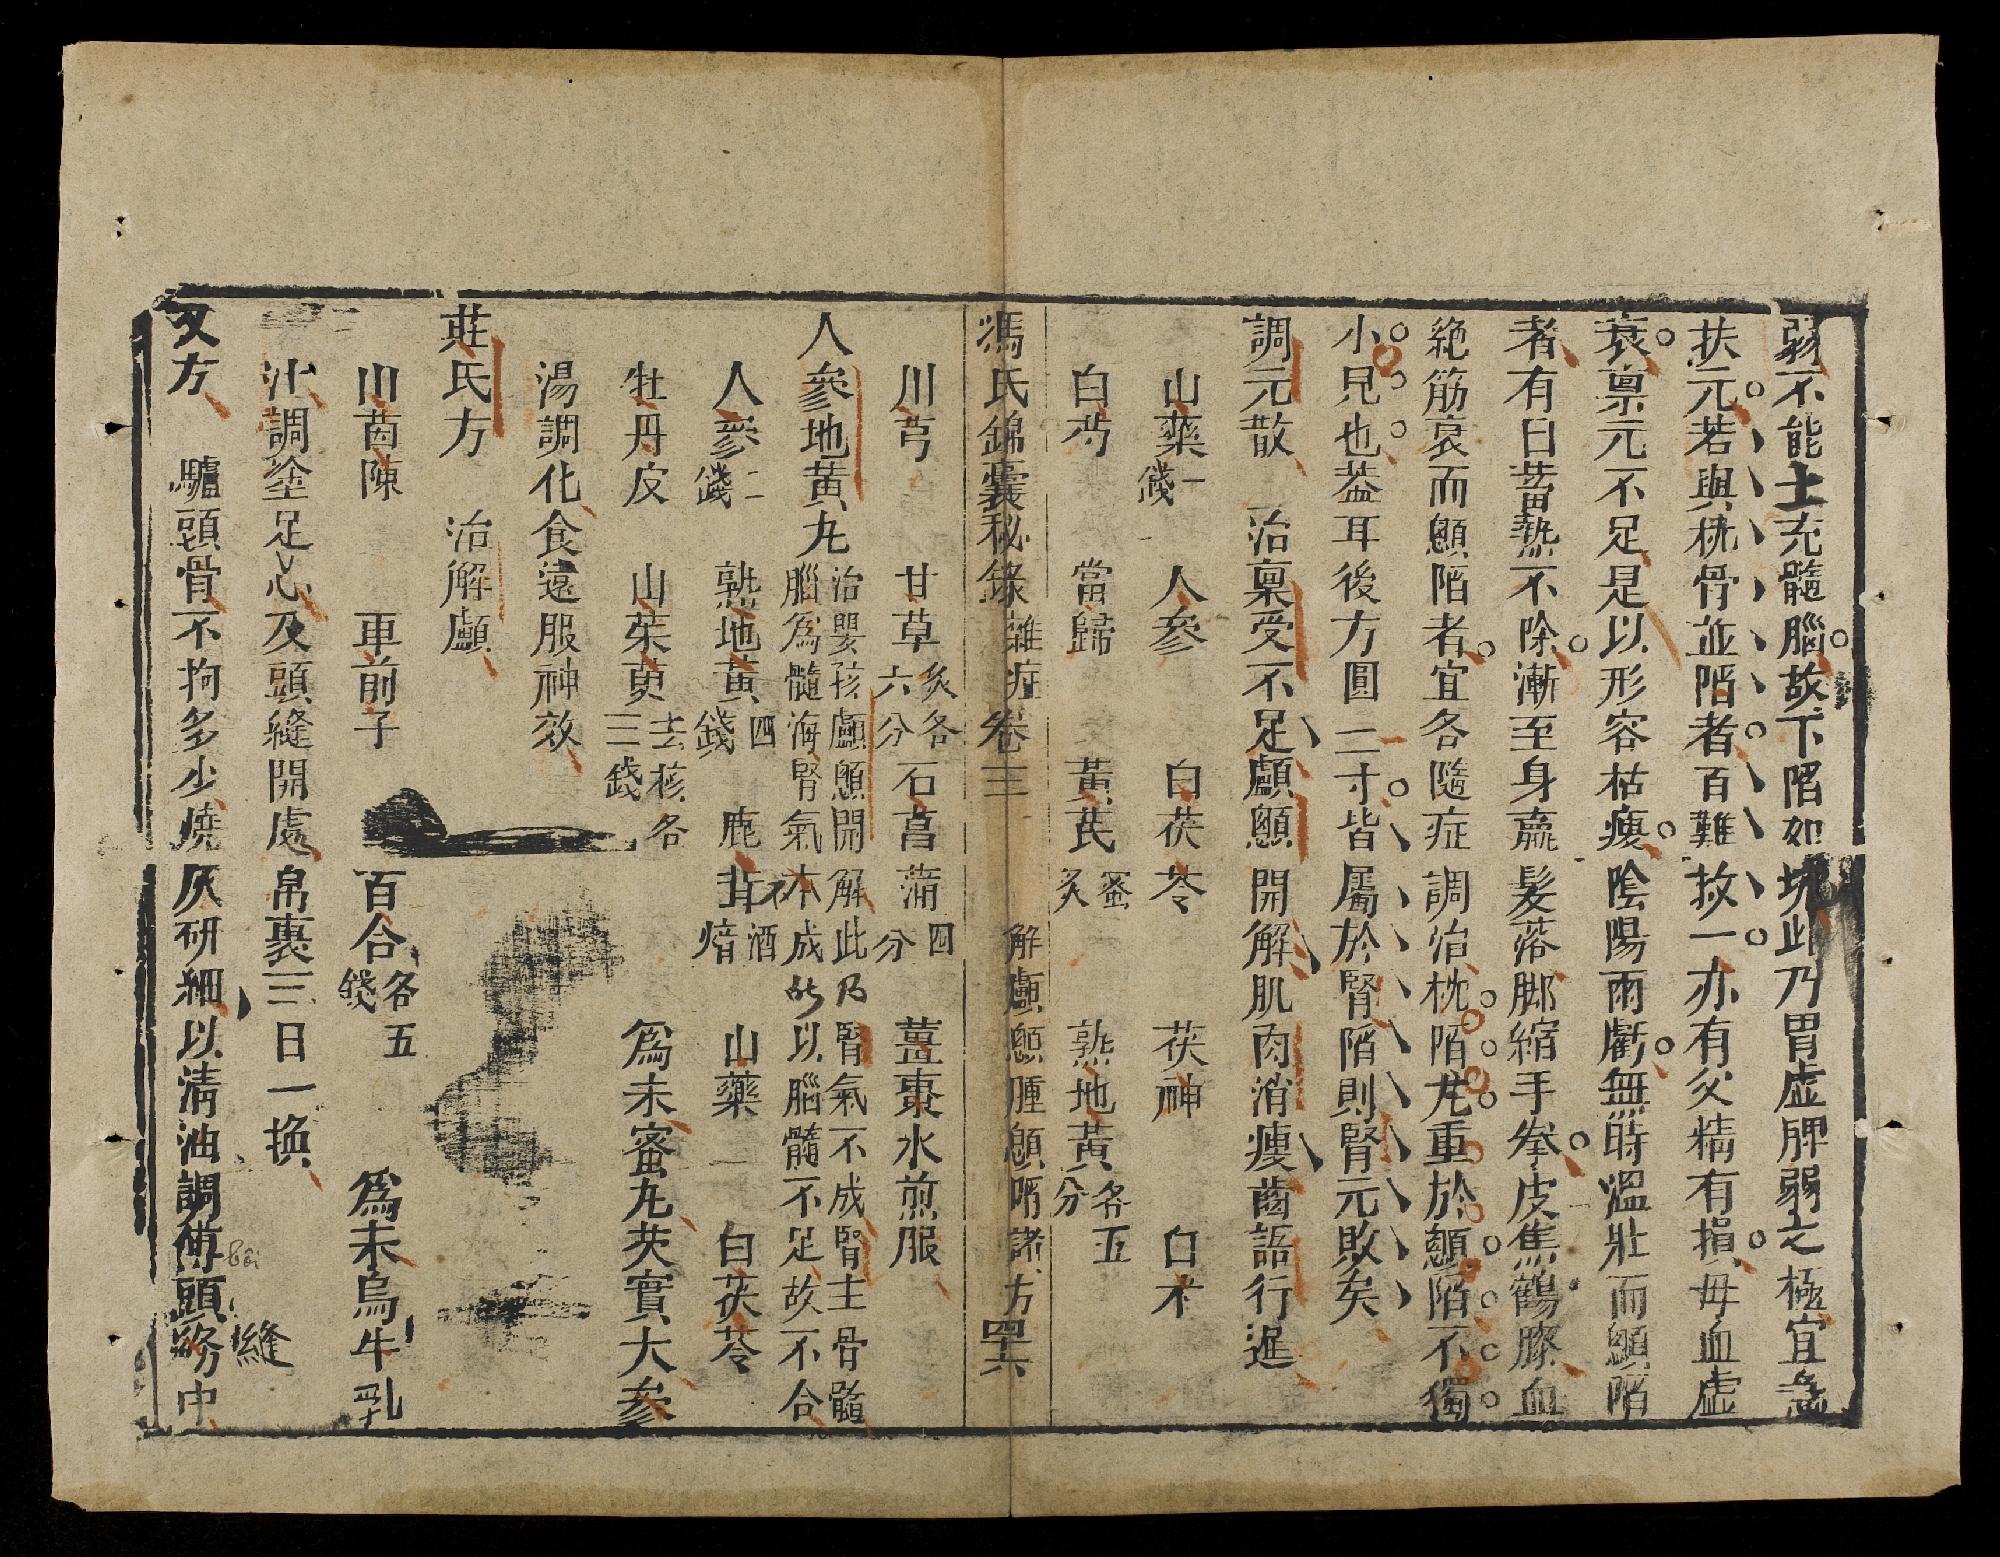 弱不能上充髓腦故下陷如坑此乃胃虛脾弱之極宜急
扶元若與枕骨並陷者百難救一亦有父精有損母血虛
衰稟元不足是以形容枯瘦陰陽兩虧無時溫壯而顖陷
者有曰蓄熱不除漸至身羸髮落脚縮手拳皮焦鶴膝血
絶筋衰而顖陷者宜各隨症調治枕陷尤重於顖陷不獨
小兒也葢耳後方圓二寸皆屬於腎陷則腎元敗矣
調元散 治稟受不足顱顖開解肌肉消瘦齒語行遲
山藥一錢 人參 白茯苓 茯神 白朮
白芍 當歸 黃芪蜜炙 熟地黃各五分
馮氏錦囊秘錄雜症卷三 解顱顖腫顖陷諸方 四六
川芎 甘草炙各六分 石菖蒲四分 薑棗水煎服
人參地黃丸 治嬰孩顱顖開解此乃腎氣不成腎主骨髓
腦爲髓海腎氣不成所以腦髓不足故不合
人參二錢 熟地黃四錢 鹿茸酒焙 山藥 白茯苓
牡丹皮 山茱萸去核各三錢 爲末蜜丸芡實大參
湯調化食遠服神效
莊氏方 治解顱
川茵陳 車前子 百合各五錢 爲末烏牛乳
汁調塗足心及頭縫開處帛裹三日一換
又方 驢頭骨不拘多少燒灰研細以清油調傅頭縫中
bôi
縫